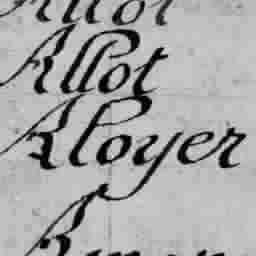 Allot
Allot
Aloyer